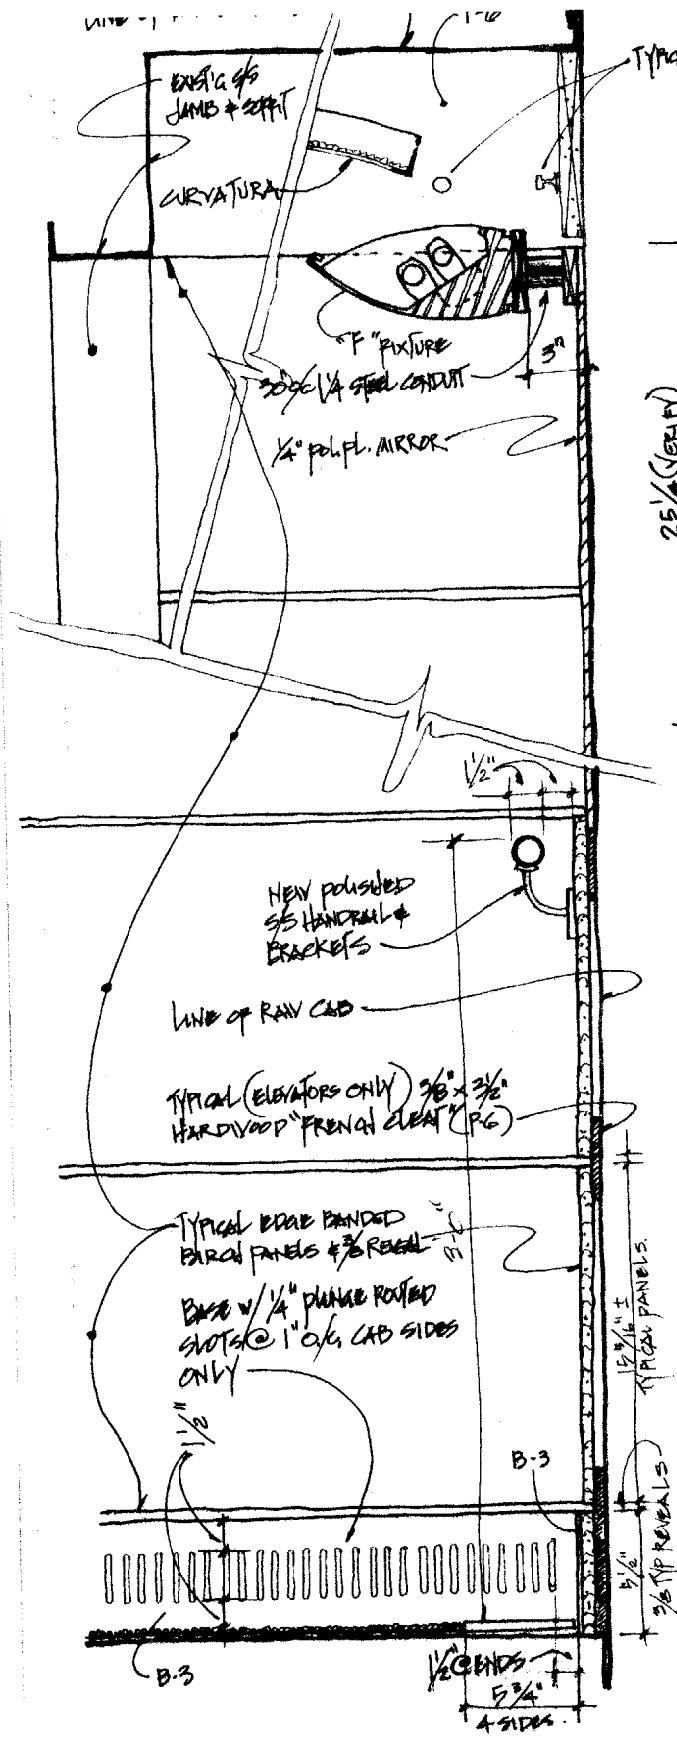 LINE OF
T-6
EXIST'G S/S
JAMB & SOFFIT
TYPIC
CURVATURA
"F" FIXTURE
30"OC 1 1/4 STEEL CONDUIT
3"
1/4" POL. PL. MIRROR
25 1/4 (VERIFY)
1 1/2"
NEW POLISHED
SS HANDRAIL &
BRACKETS
LINE OF RAW CAB
TYPICAL (ELEVATORS ONLY) 3/8" x 3 1/2"
HARDWOOD "FRENCH CLEAT" (P-6)
TYPICAL EDGE BANDED
BIRCH PANELS & 3/8 REVEAL
BASE W/ 1/4" PLUNGE ROUTED
SLOTS @ 1" O/C, CAB SIDES
ONLY
15 5/16" ±
TYPICAL PANELS.
1 1/2"
B-3
5 1/2"
3/8 TYP REVEALS
B-3
1 1/2" @ ENDS
5 3/4"
4 SIDES.